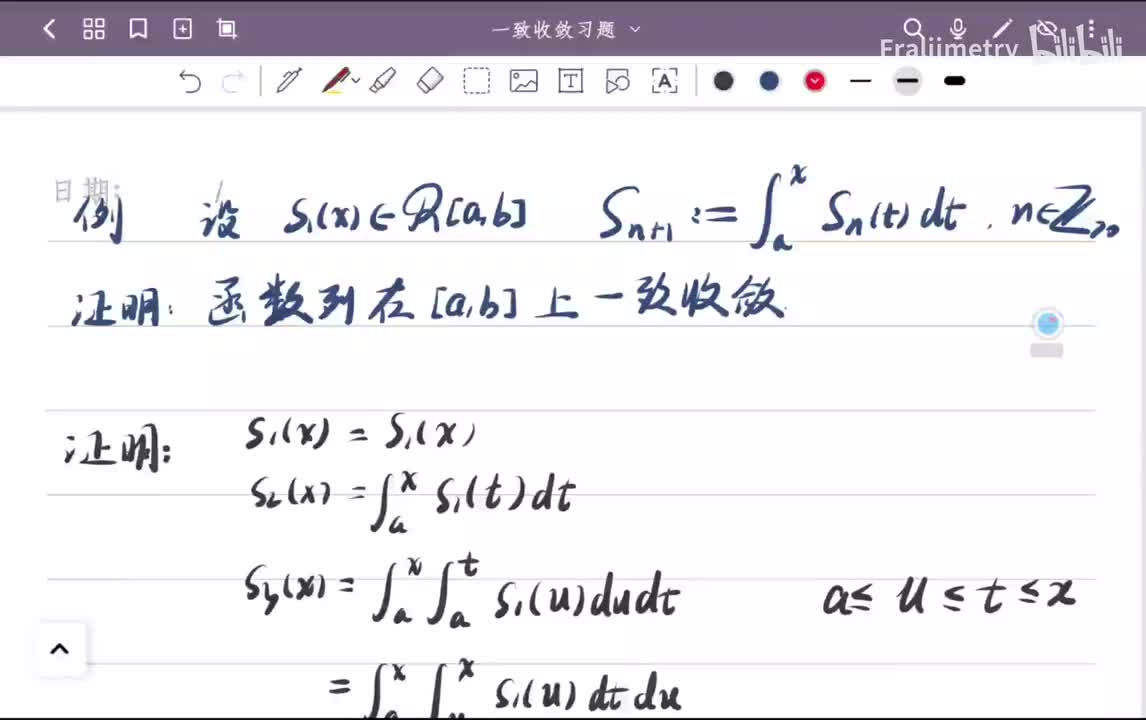 一致收敛习题
Eraliimetry bilibili
日期:
例 设 S₁(x)∈R[a,b] Sₙ₊₁ := ∫ₐˣ Sₙ(t)dt . n∈ℤ>₀
证明: 函数列在[a,b]上一致收敛.
证明: S₁(x) = S₁(x)
S₂(x) = ∫ₐˣ S₁(t)dt
S₃(x) = ∫ₐˣ ∫ₐᵗ S₁(u)dudt a≤ u ≤ t ≤ x
= ∫ₐˣ ∫ᵤˣ S₁(u) dt du